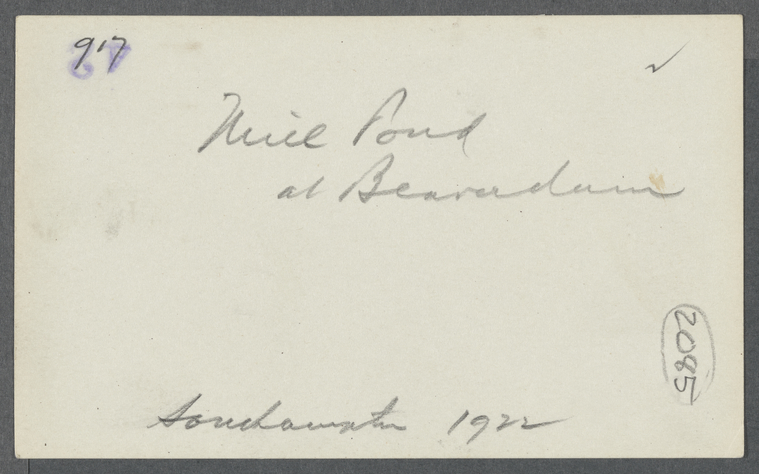 917
Mill Pond
at Beaverdam
2085
Southampton 1922